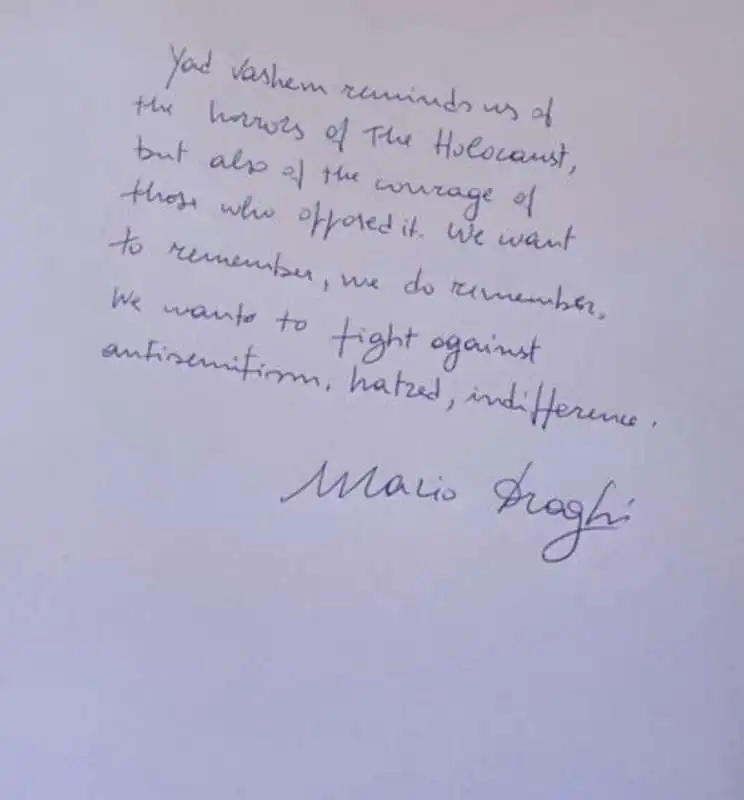 Yad Vashem reminds us of
the horrors of The Holocaust,
but also of the courage of
those who opposed it. We want
to remember, we do remember.
We wants to fight against
antisemitism, hatred, indifference.
Mario Draghi